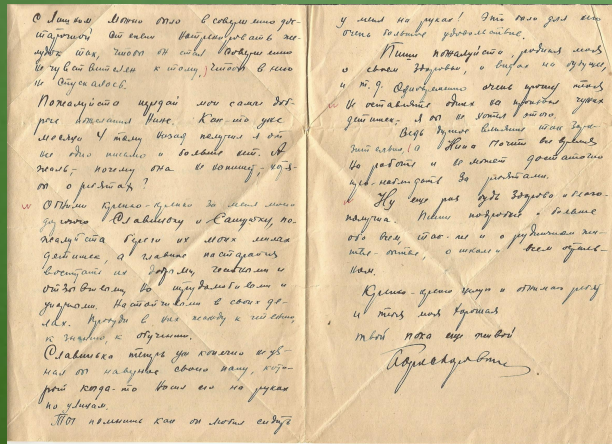 с Яшком. Можно было в совершенно дос-
таточной степени натренировать же-
лудок так, чтобы он стал совершенно
не чувствителен к тому, что бы в него
не спускалось.
Пожалуйста передай мои самые доб-
рые пожелания Нине. Как-то уже
месяцев 4 тому назад получил я от
нее одно письмо и больше нет. А
жаль, почему она не напишет, хотя-
бы о ребятах?
Обними крепко-крепко за меня моих
Славчику и Сашутку, по-
жалуйста береги их моих милых
детишек, а главное постарайся
воспитать их добрыми, честными и
отзывчивыми, но трудолюбивыми и
упорными. Настойчивыми в своих де-
лах. Пробуди в них жажду к чтению,
к знанию, к обучению.
Славинька теперь уж конечно не уз-
нал бы наверное своего папу, кото-
рый когда-то носил его на руках
по улицам.
Ты помнишь как он любил сидеть
у меня на руках! Это было для него
очень большое удовольствие.
Пиши пожалуйста, родная моя
о своем здоровьи, о видах на будущее,
и т.д. Одновременно очень прошу тебя
не оставляйте одних на произвол чужих
детишек, я бы не хотел этого.
Ведь дурное влияние так
а Нина почти все время
на работе и не может достаточно
понаблюдать за ребятами.
Ну еще раз будь здорова и благо-
получна. Пиши подробнее и больше
обо всем, также и о жи-
тье-бытье, о школе и всем осталь-
ном.
Крепко-крепко целую и обнимаю ребят
и тебя моя хорошая
твой пока еще живой